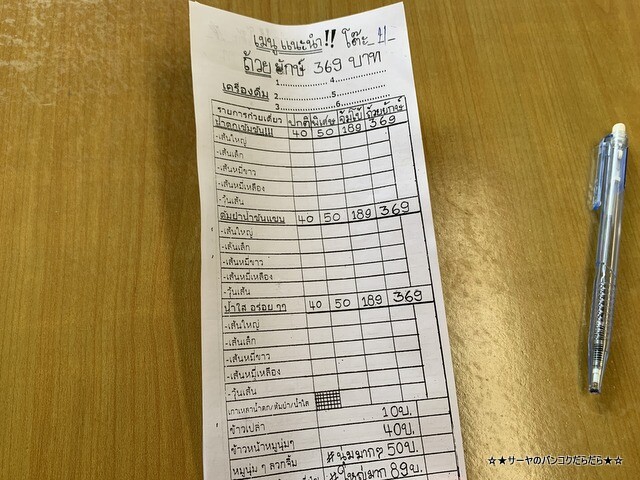 เมนูแนะนำ!! โต๊ะ_ข_
ถ้วยยักษ์ 369 บาท
1............... 4...............
เครื่องดื่ม 2............... 5...............
3............... 6...............
รายการก๋วยเตี๋ยว ปกติ พิเศษ จัมโบ้ ถ้วยยักษ์
น้ำตกเข้มข้น!!! 40 50 189 369
-เส้นใหญ่
-เส้นเล็ก
-เส้นหมี่ขาว
-เส้นหมี่เหลือง
-วุ้นเส้น
ต้มยำน้ำข้น 40 50 189 369
-เส้นใหญ่
-เส้นเล็ก
-เส้นหมี่ขาว
-เส้นหมี่เหลือง
-วุ้นเส้น
น้ำใส อร่อย ๆๆ 40 50 189 369
-เส้นใหญ่
-เส้นเล็ก
-เส้นหมี่ขาว
-เส้นหมี่เหลือง
-วุ้นเส้น
เกาเหลาน้ำตก/ต้มยำ/น้ำใส
ข้าวเปล่า 10บ.
ข้าวหน้าหมูนุ่มๆ 40บ.
หมูนุ่ม ๆ ลวกจิ้ม #นุ่มมากๆ 50บ.
#ใหญ่มาก 89บ.
☆★サーヤのバンコクだらだら★☆